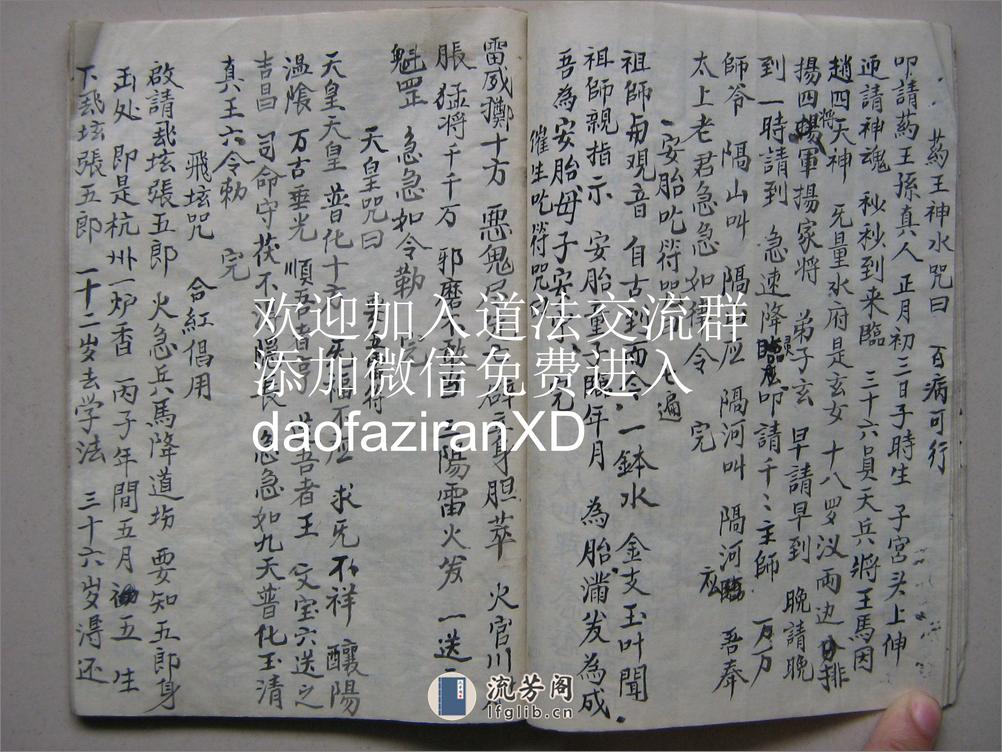 药王神水咒曰 百病可行
叩請药王孫真人 正月初三日子時生 子宮头上伸
迎請神魂 秒秒到来臨 三十六員天兵將王馬因
趙四天神 旡量水府是玄女 十八罗汉両边分排
揚四將軍揚家將 弟子玄 早請早到 晚請晚
到 一時請到 急速降臨 叩請千千主師 万万
師爷 隔山叫 隔山应 隔河叫 隔河 吾奉
太上老君急急如律令 完
安胎吃符咒 七遍
祖師南观音 自古到而今 一鉢水 金支玉叶聞
祖師親指示 安胎童子 年月 為胎滿发為成
吾為安胎母子安 完
催生吃符咒
雷威擲十方 悪鬼 身胆萃 火官川
脹 猛将千千万 邪魔不敢当 陽雷火发 一送
魁罡 急急如令勅
天皇咒曰
天皇天皇 普化十方 不应 求旡不祥 釀陽
温隂 万古垂光 順吾者吉 吾者王 文宝六送之
吉昌 司命守 不 隂長 急急如九天普化玉清
真王六令勅 完
飛坛咒 合紅倡用
啟請飛坛張五郎 火急兵馬降道坊 要知五郎身
玉处 即是杭州一炉香 丙子年間五月 五 生
下飛坛張五郎 一十二岁去学法 三十六岁淂还
欢迎加入道法交流群
添加微信免费进入
daofaziranXD
流芳阁
lfglib.cn